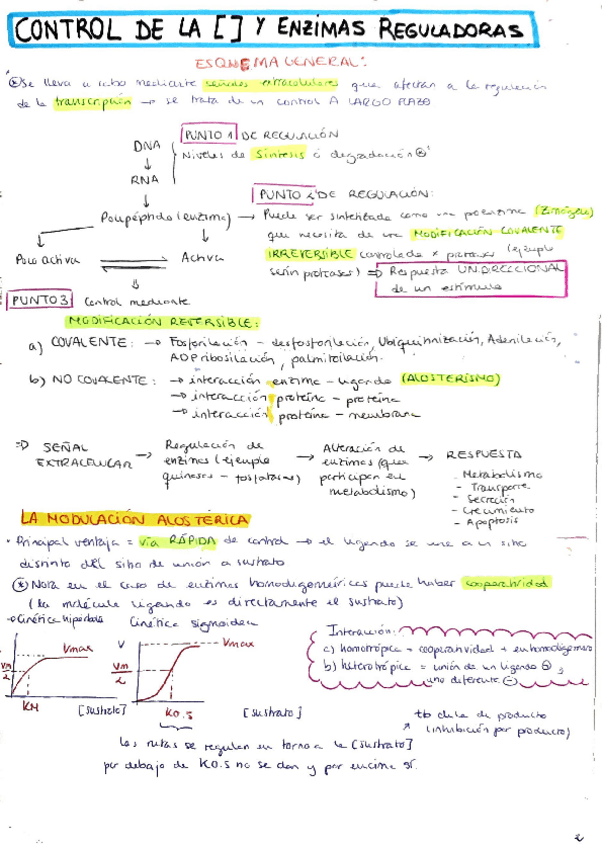 CONTROL DE LA [ ] Y ENZIMAS REGULADORAS
ESQUEMA GENERAL:
Se lleva a cabo mediante señales extracelulares que afectan a la regulación
de la transcripción → se trata de un control A LARGO PLAZO.
PUNTO 1 DE REGULACIÓN
DNA
Niveles de síntesis ó degradación
RNA
PUNTO 2 DE REGULACIÓN:
Polipéptido (enzima) → Puede ser sintetizada como una proenzima (Zimógeno)
que necesita de una MODIFICACIÓN COVALENTE
Poco activa
Activa
IRREVERSIBLE controlada x proteasas (ejemplo
serín proteasas) ⇒ Respuesta UNIDIRECCIONAL
de un estímulo
PUNTO 3 Control mediante
MODIFICACIÓN REVERSIBLE:
a) COVALENTE: → Fosforilación - desfosforilación, Ubiquitinización, Adenilación,
ADPribosilación, palmitoilación.
b) NO COVALENTE: → interacción enzima - ligando (ALOSTERISMO)
→ interacción proteína - proteína
→ interacción proteína - membrana
⇒ SEÑAL EXTRACELULAR → Regulación de enzimas (ejemplo quinasas - fosfatasas) → Alteración de enzimas (que participan en metabolismo) → RESPUESTA
- Metabolismo
- Transporte
- Secreción
- Crecimiento
- Apoptosis
LA MODULACIÓN ALOSTÉRICA
· Principal ventaja = vía RÁPIDA de control → el ligando se une a un sitio
distinto del sitio de unión a sustrato
* Nota en el caso de enzimas homodigoméricas puede haber cooperatividad
(la molécula ligando es directamente el sustrato)
Cinética hipérbola
Cinética sigmoidea
Vmax
Vm/2
KM
[sustrato]
V
Vmax
Vm/2
K0.5
[sustrato]
Interacción:
a) homotrópica = cooperatividad +
b) heterotrópica = unión de un ligando ⊕ ó
uno diferente ⊖
tb de la de producto
(inhibición por producto)
Las rutas se regulan en torno a la [sustrato]
por debajo de K0.5 no se dan y por encima sí.
2